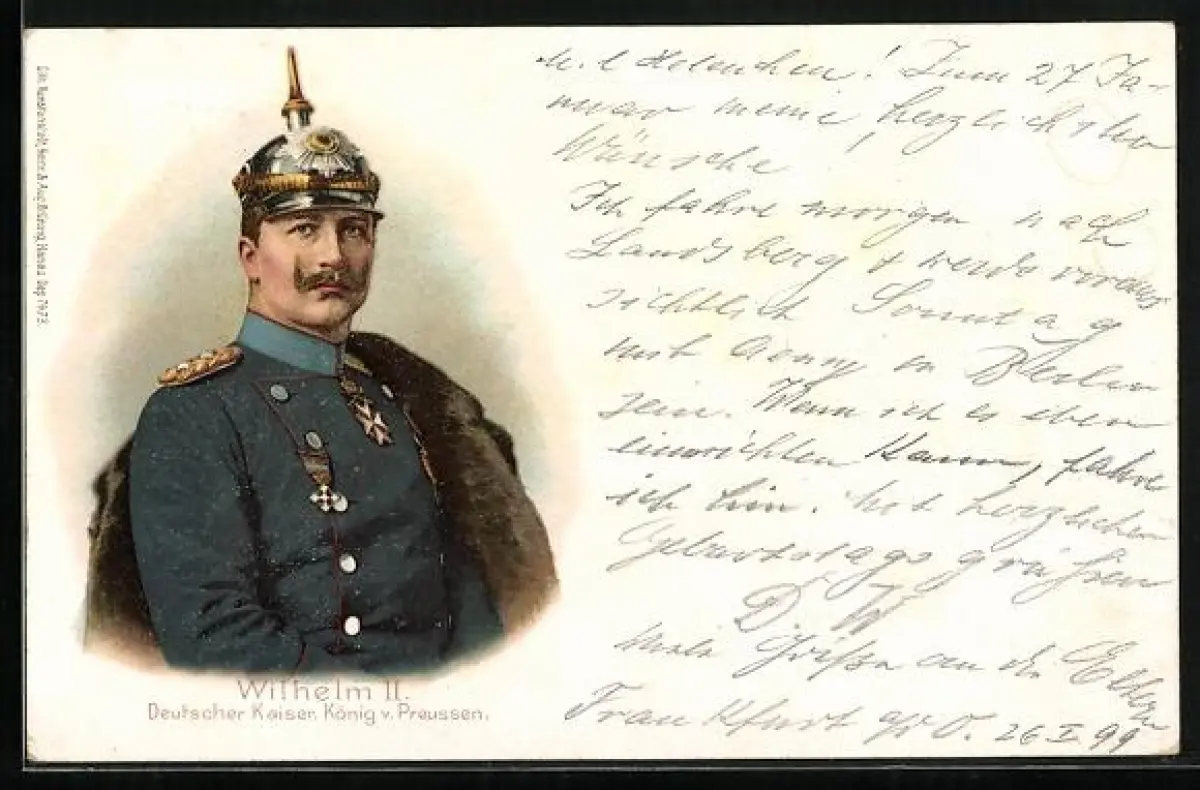 Wilhelm II.
Deutscher Kaiser, König v. Preussen.
M. l Helenchen! Zum 27 Ja-
nuar meine herzlichsten
Wünsche!
Ich fahre morgen nach
Landsberg + werde voraus
sichtlich Sonntag
mit in Berlin
sein. Wenn ich es eben
einrichten kann, fahre
ich hin. Mit herzlichen
Geburtstagsgrüßen
D. W
Viele Grüße an die Eltern
Frankfurt a/O. 26 I 99